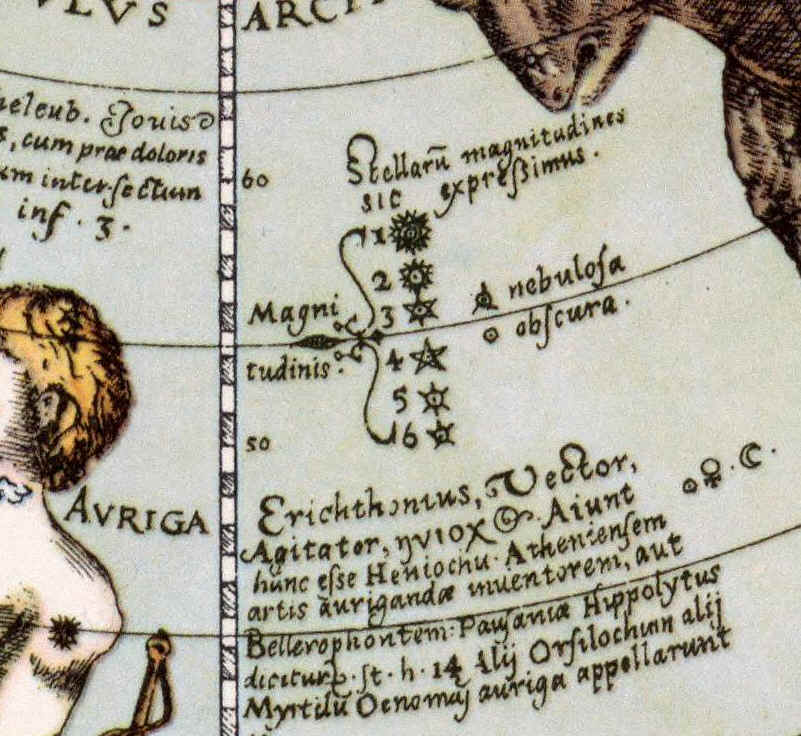 VLVS
ARCT
heleub. Jouis
s, cum præ doloris
um inter-sectum
inf. 3.
60
Stellarū magnitudines
sic expreßimus.
1
2
Magni 3
nebulosa
obscura.
tudinis. 4
5
50
6
AVRIGA
Erichthonius, Vector,
☿ . ☾ .
Agitator, ηνιοχ Aiunt
hunc esse Heniochu Atheniensem
artis aurigandæ inuentorem, aut
Bellerophontem: Pausaniæ Hippolytus
dicitur. st. h. 14 Alij Orsilochum alij
Myrtilū Oenomaj auriga appellarunt